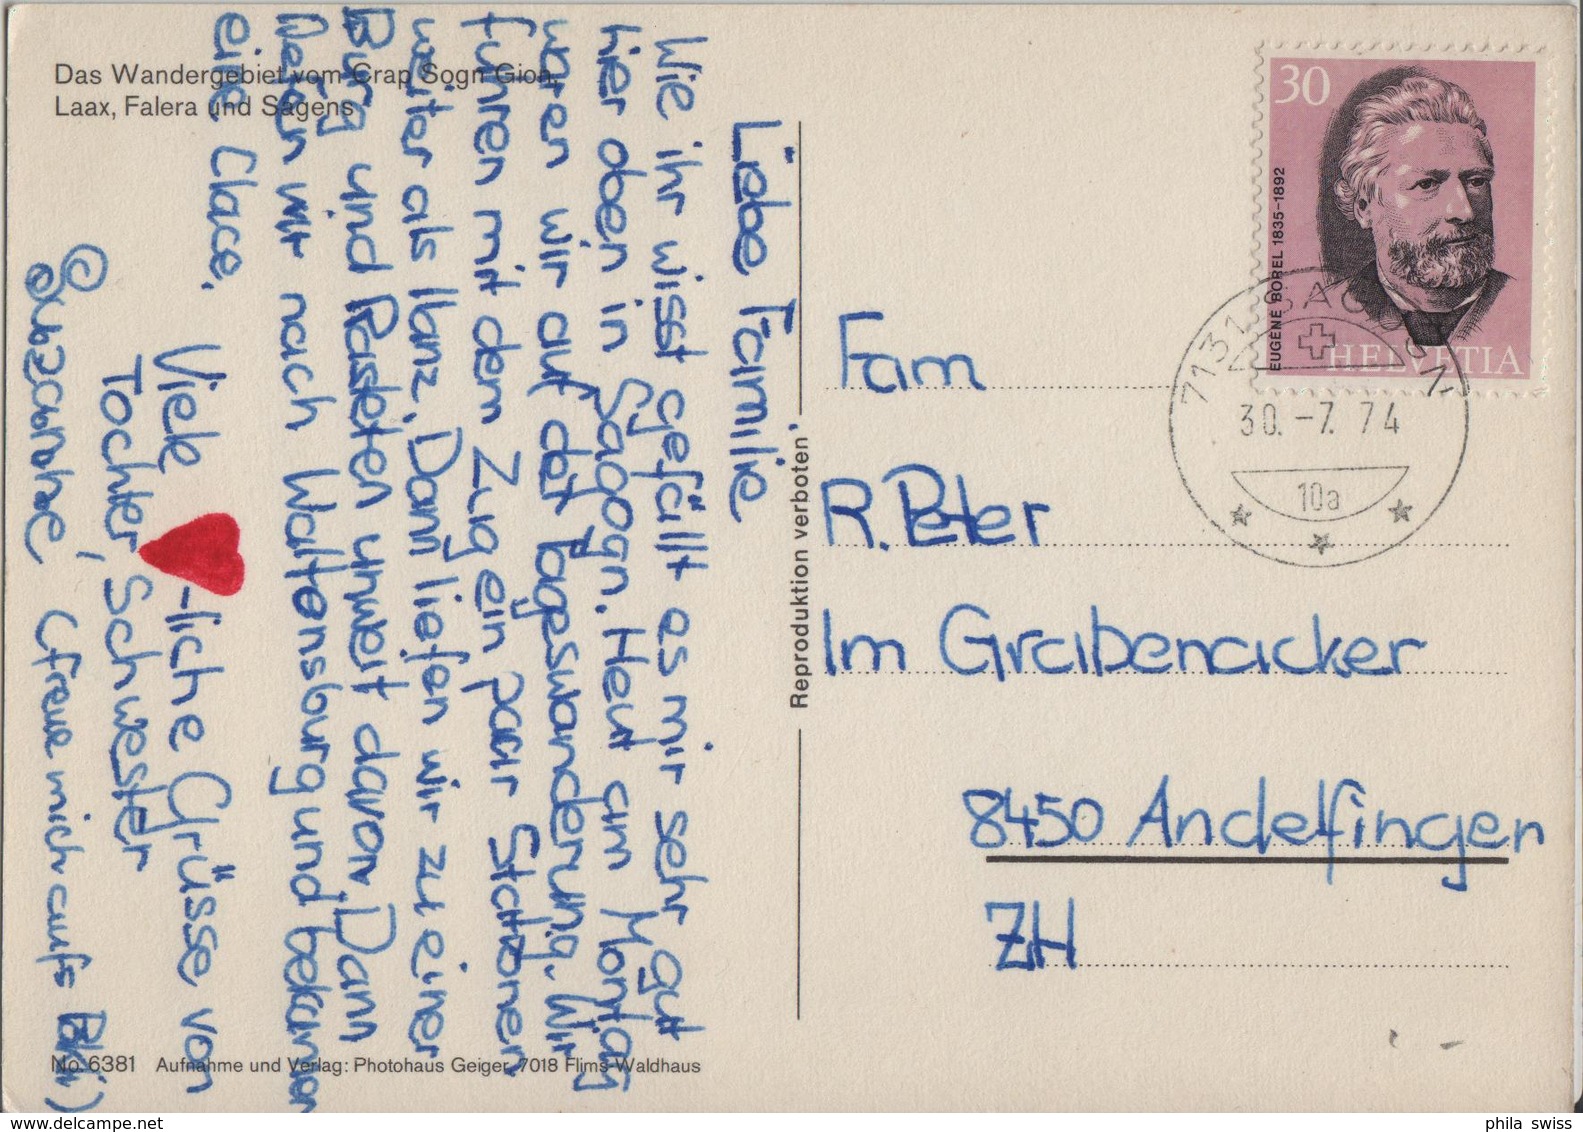 Das Wandergebiet vom Crap Sogn Gion,
Laax, Falera und Sagens
Liebe Familie
Wie ihr wisst gefällt es mir sehr gut
hier oben in Sagogn. Heut am Montag
waren wir auf der Tageswanderung. Wir
fuhren mit dem Zug ein paar Stationen
weiter als Ilanz. Dann liefen wir zu einer
Burg und Rasteten unweit davon. Dann
liefen wir nach Waltensburg und bekamen
eine Glace.
Viele
-liche Grüsse von
Tochter, Schwester
(freue mich aufs
No. 6381 Aufnahme und Verlag: Photohaus Geiger, 7018 Flims-Waldhaus
Reproduktion verboten
30
EUGÈNE BOREL 1835-1892
HELVETIA
7131 SAGOGN
30.-7.74
10a
Fam
R. Peter
Im Grabenacker
8450 Andelfingen
ZH
phila swiss